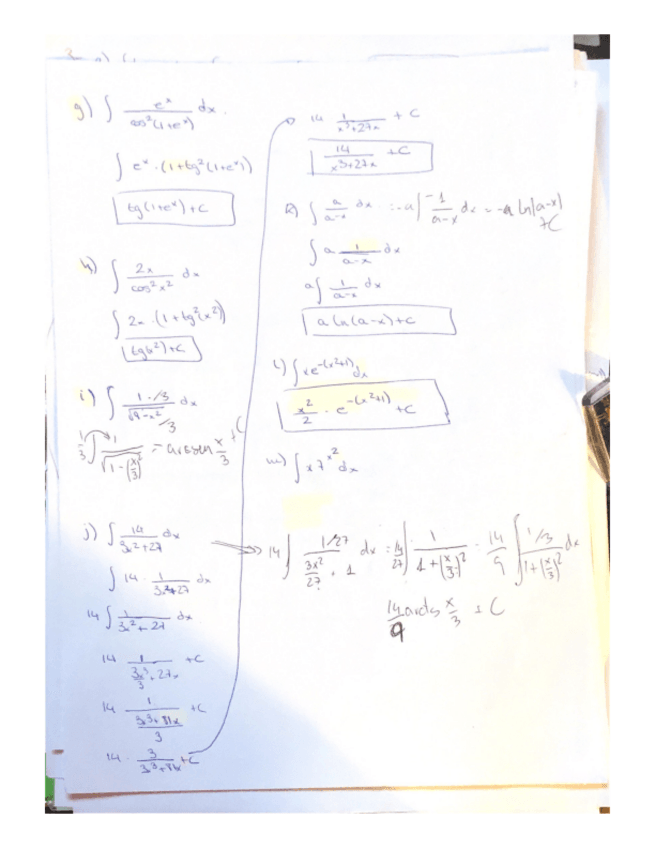 g) ∫ e^x / cos²(1+e^x) dx.
∫ e^x · (1+tg²(1+e^x))
tg(1+e^x)+C
h) ∫ 2x / cos²x² dx
∫ 2x · (1+tg²(x²))
tg(x²)+C
i) ∫ 1·/3 / √9-x² /3 dx
1/3 ∫ 1 / √1-(x/3)² = arcsen x/3 + C
j) ∫ 14 / 3x²+27 dx
∫ 14 · 1 / 3x²+27 dx
14 ∫ 1 / 3x²+27 dx
14 1 / 3x³/3 + 27x +C
14 · 1 / (3x³+81x / 3) +C
14 · 3 / 3x³+81x +C
14 1 / x³+27x + C
14 / x³+27x +C
k) ∫ a / a-x dx = -a ∫ -1 / a-x dx = -a ln|a-x| +C
∫ a 1 / a-x dx
a ∫ 1 / a-x dx
a ln(a-x)+C
l) ∫ xe^-(x²+1) dx
x²/2 · e^-(x²+1) +C
m) ∫ x7^x² dx
14 ∫ 1/27 / 3x²/27 + 1 dx = 14/27 ∫ 1 / 1+(x/3)² = 14/9 ∫ 1/3 / 1+(x/3)² dx
14/9 arctg x/3 + C